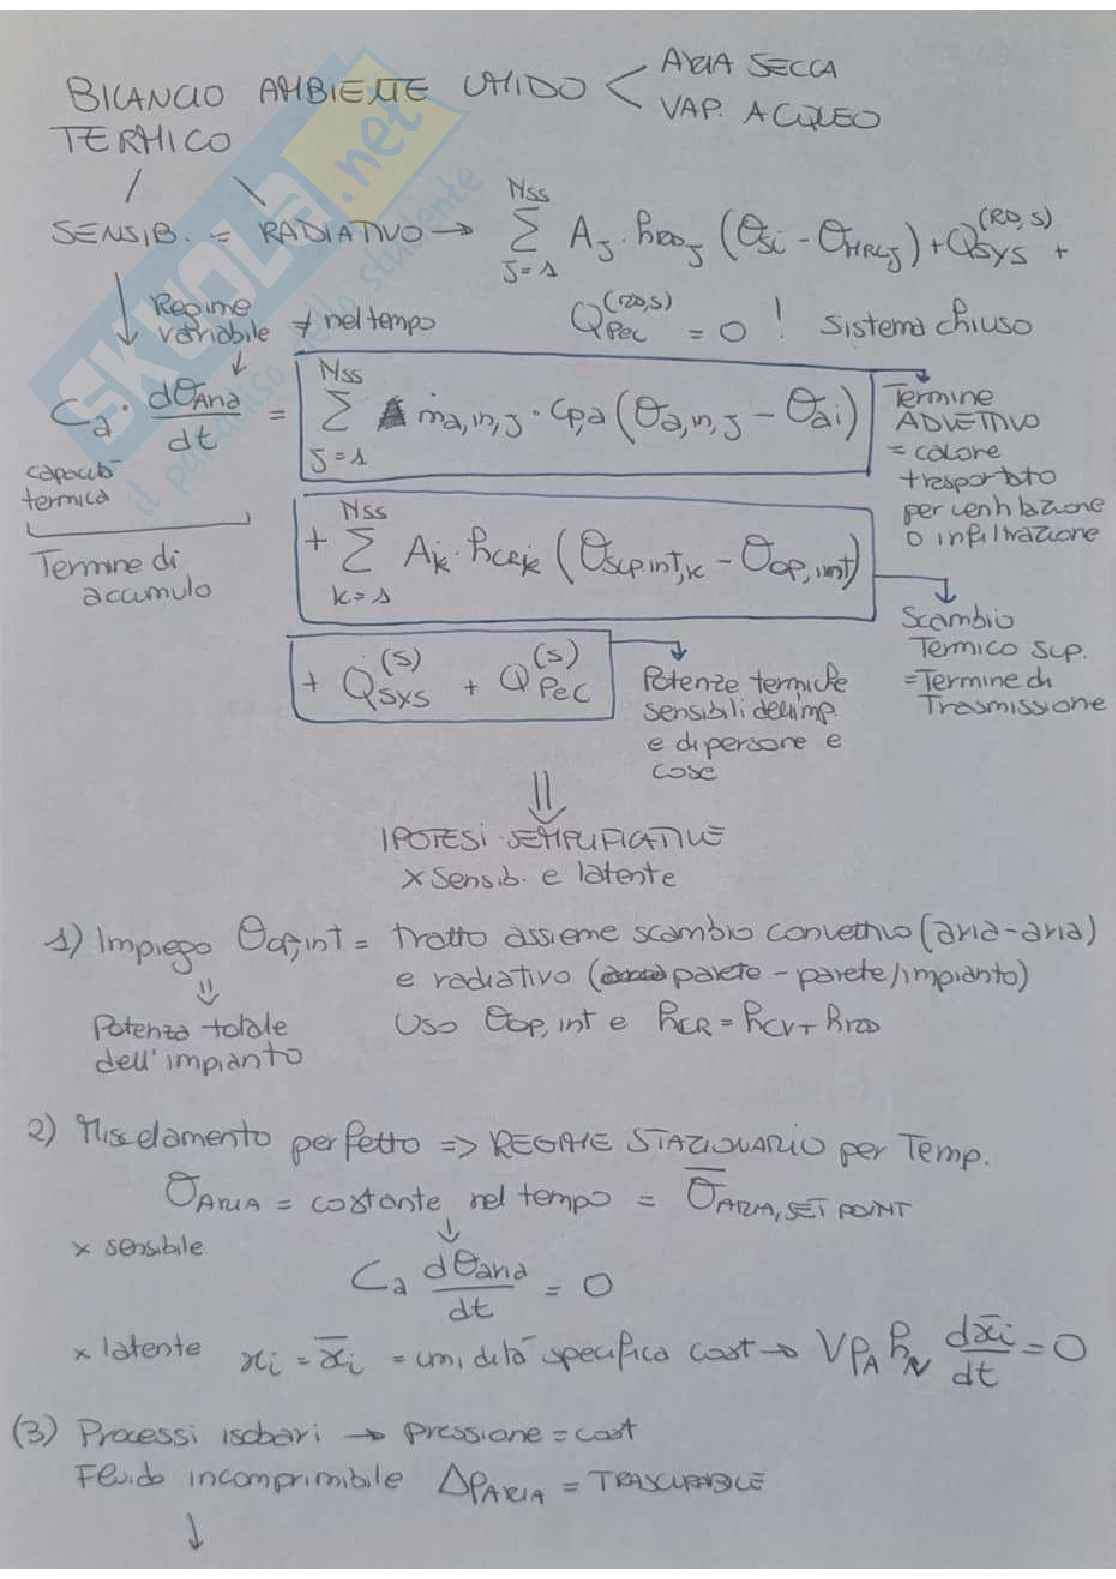 BILANCIO AMBIENTE UMIDO < ARIA SECCA
VAP. ACQUEO
TERMICO
SENSIB. = RADIATIVO → Σ_{J=1}^{Nss} A_J · h_{RD,J} (θ_{si} - θ_{MRC,J}) + Q_{SYS}^{(RD,S)} +
Q_{Pec}^{(RD,S)} = 0 ! Sistema chiuso
↓ Regime variabile ≠ nel tempo
C_a · dθ_{Aria}/dt = Σ_{J=1}^{Nss} ṁ_{a,in,J} · c_{p,a} (θ_{a,in,J} - θ_{ai})
Termine
ADVETTIVO
= calore
trasportato
per ventilazione
o infiltrazione
capacità
termica
Termine di
accumulo
+ Σ_{k=1}^{Nss} A_k · h_{CR,k} (θ_{sup int,k} - θ_{op,int})
Scambio
Termico Sup.
= Termine di
Trasmissione
+ Q_{SYS}^{(S)} + Q_{PeC}^{(S)}
Potenze termiche
sensibili dell'imp.
e di persone e
cose
⇓
IPOTESI SEMPLIFICATIVE
x Sensib. e latente
1) Impiego θ_{op,int} = tratto assieme scambio convettivo (aria-aria)
e radiativo (parete - parete/impianto)
⇓
Potenza totale
dell'impianto
Uso θ_{op,int} e h_{CR} = h_{CV} + h_{RD}
2) Miscelamento perfetto => REGIME STAZIONARIO per Temp.
θ_{ARIA} = costante nel tempo = θ̅_{ARIA, SET POINT}
x sensibile
↓
C_a dθ_{aria}/dt = 0
x latente x_i = x̄_i = umidità specifica cost → Vρ_A h_N dx̄_i/dt = 0
(3) Processi isobari → pressione = cost
Fluido incomprimibile Δρ_{ARIA} = TRASCURABILE
↓
SKUOLA.net
il paradiso dello studente